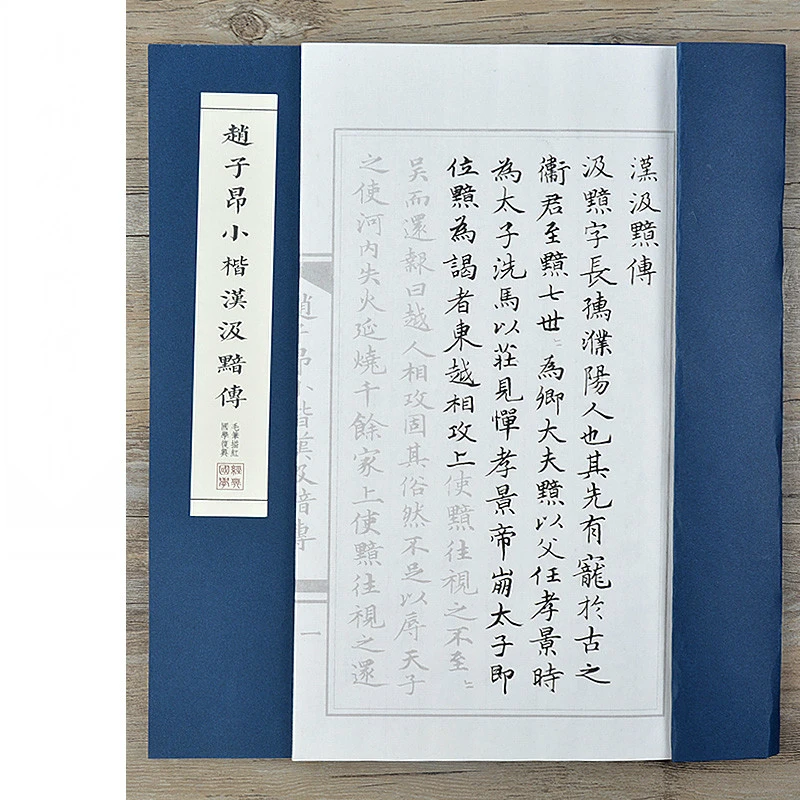 趙子昂小楷漢汲黯傳
毛筆描紅
國學復興
經典
國學
漢汲黯傳
汲黯字長孺濮陽人也其先有寵於古之
衛君至黯七世〻為卿大夫黯以父任孝景時
為太子洗馬以莊見憚孝景帝崩太子即
位黯為謁者東越相攻上使黯往視之不至〻
吴而還報曰越人相攻固其俗然不足以辱天子
之使河内失火延燒千餘家上使黯往視之還
趙子昂小楷漢汲黯傳
一